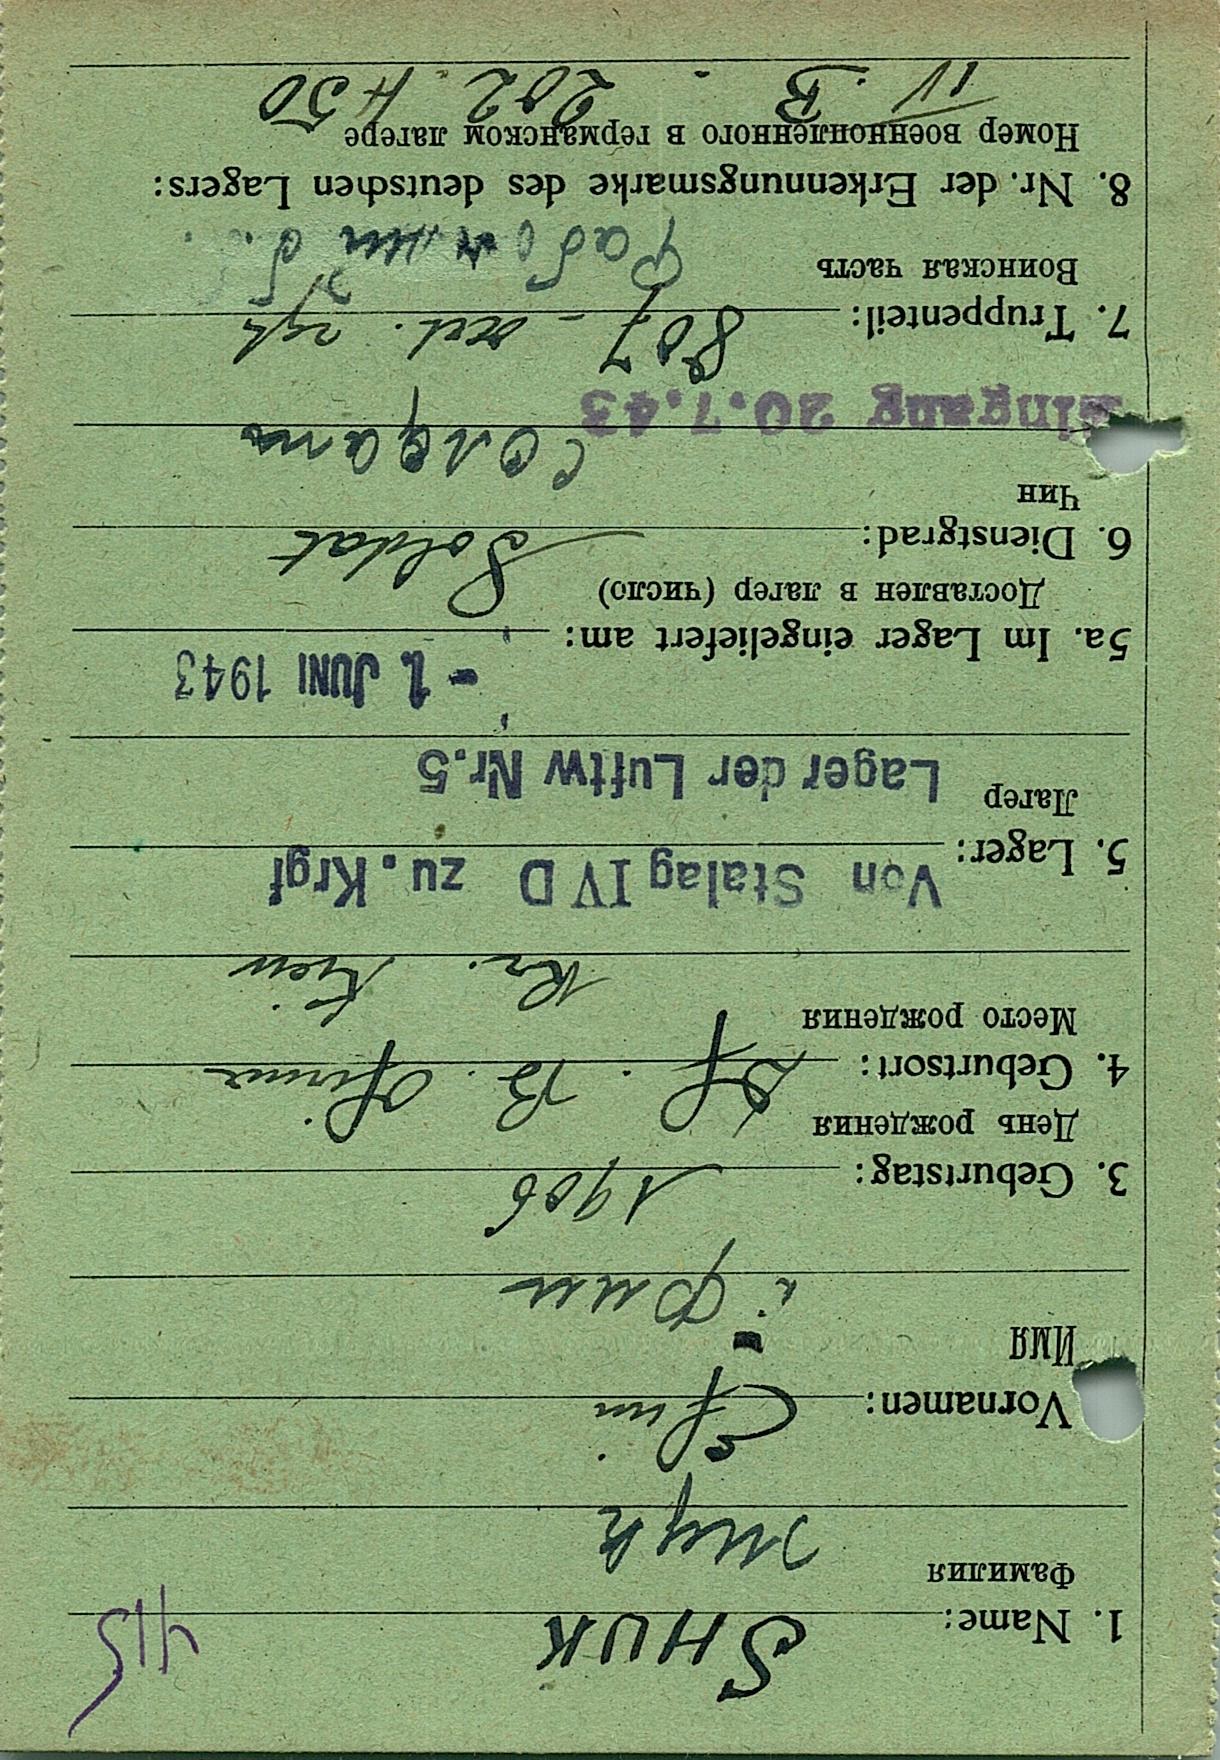 415
1. Name: SHUK
Фамилия
Жук
Vornamen: Efim
Имя
ефим
3. Geburtstag: 1906
День рождения
4. Geburtsort: Df. B.
Место рождения
Kr. Kiew
Von Stalag IV D zu. Krgf
5. Lager:
Лагер Lager der Luftw Nr.5
- 1. JUNI 1943
5a. Im Lager eingeliefert am:
Доставлен в лагер (число)
6. Dienstgrad: Soldat
Чин
Солдат
Eingang 20.7.43
7. Truppenteil: 807
Воинская часть
8. Nr. der Erkennungsmarke des deutschen Lagers:
Номер военнопленного в германском лагере
IV. B. 202.450